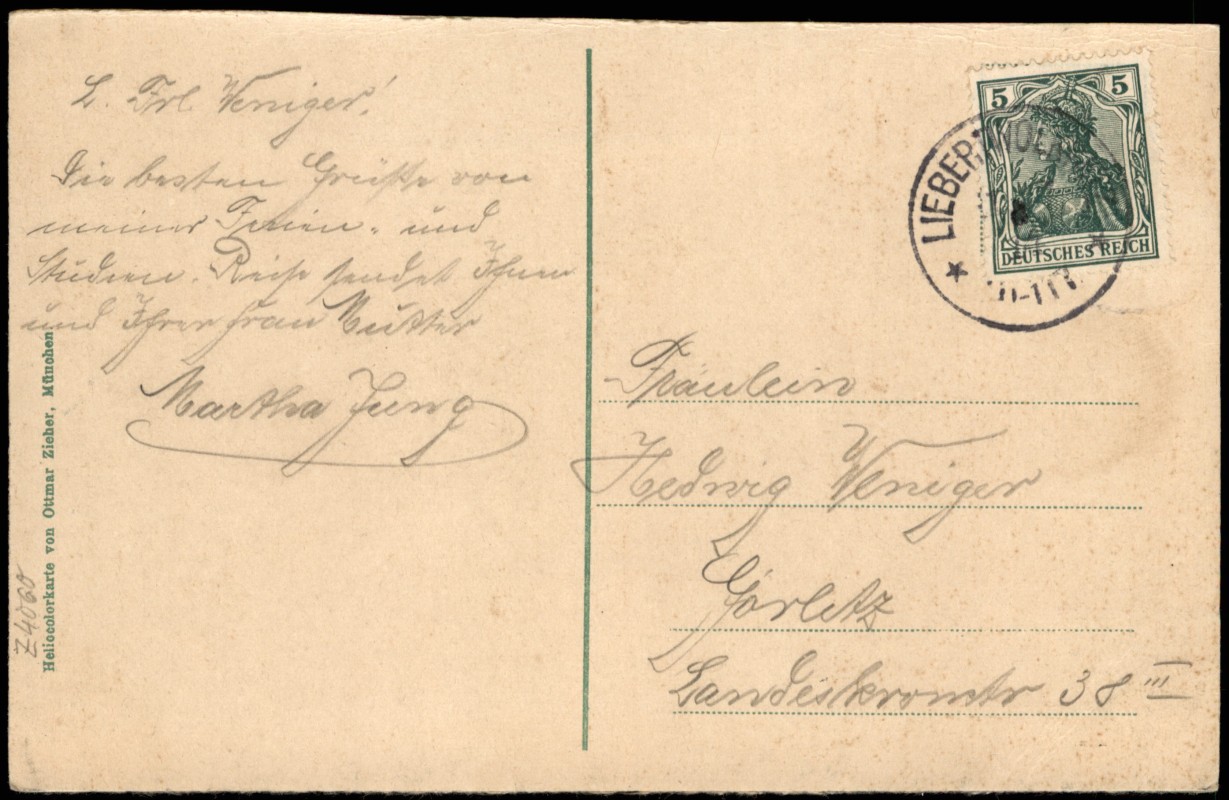 L. Frl. Weniger!
Die besten Grüße von
meiner Ferien- und
Studien-Reise sendet Ihnen
und Ihrer Frau Mutter
Martha Jung
Heliocolorkarte von Ottmar Zieher, München
Z4060
5 5
DEUTSCHES REICH
LIEBER
Fräulein
Hedwig Weniger
Görlitz
Landeskronstr 38 III